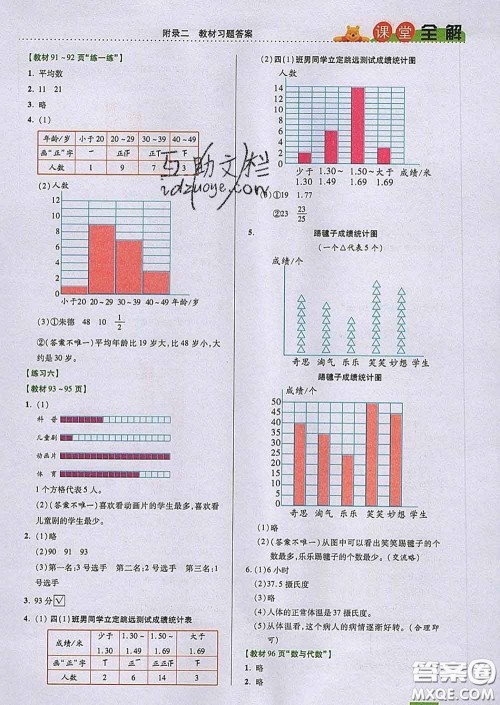 附录二　教材习题答案
课堂全解
【教材 91～92 页“练一练”】
1. 平均数
2. 11　21
3. 略
4. (1)
年龄/岁　小于20　20～29　30～39　40～49
画“正”字
人数　1　9　7　3
(2) 人数
10
8
6
4
2
0
小于20　20～29　30～39　40～49　年龄/岁
(3)①朱德　48　10　1/2
②(答案不唯一)平均年龄比 19 岁大,比 48 岁小,
大约是 30 岁。
【练习六】
【教材 93～95 页】
1. (1)
科 普
儿童剧
动画片
体 育
1 个方格代表 5 人。
(2)(答案不唯一)喜欢看动画片的学生最多,喜欢看
儿童剧的学生最少。
2. (1)略
(2)90　91　93
(3)第一名:3 号选手　第二名:2 号选手　第三名:1
号选手
3. 93 分
4. (1)四(1)班男同学立定跳远测试成绩统计表
成绩/米　少于1.30　1.30～1.49　1.50～1.69　大于1.69
画“正”字
人数　2　6　14　3
(2)四(1)班男同学立定跳远测试成绩统计图
人数
14
12
10
8
6
4
2
0
少于　1.30～　1.50～　大于　成绩/米
1.30　1.49　1.69　1.69
(3)①19　1.77
②23　23/25
5.
踢毽子成绩统计图
(一个△代表 5 个)
成绩/个
奇思　淘气　乐乐　笑笑　妙想　学生
踢毽子成绩统计图
成绩/个
50
40
30
20
10
0
奇思　淘气　乐乐　笑笑　妙想　学生
(1)略
(2)(答案不唯一)从图中可以看出笑笑踢毽子的个
数最多,乐乐踢毽子的个数最少。(交流略)
6. (1)6 小时
(2)37.5 摄氏度
(3)略
(4)人体的正常体温是 37 摄氏度。
(5)从体温来看,这个病人的病情逐渐好转。(合理即
可)
【教材 96 页“数与代数”】
1. 略
2. 略
互助文档
答案圈
MXQE.COM